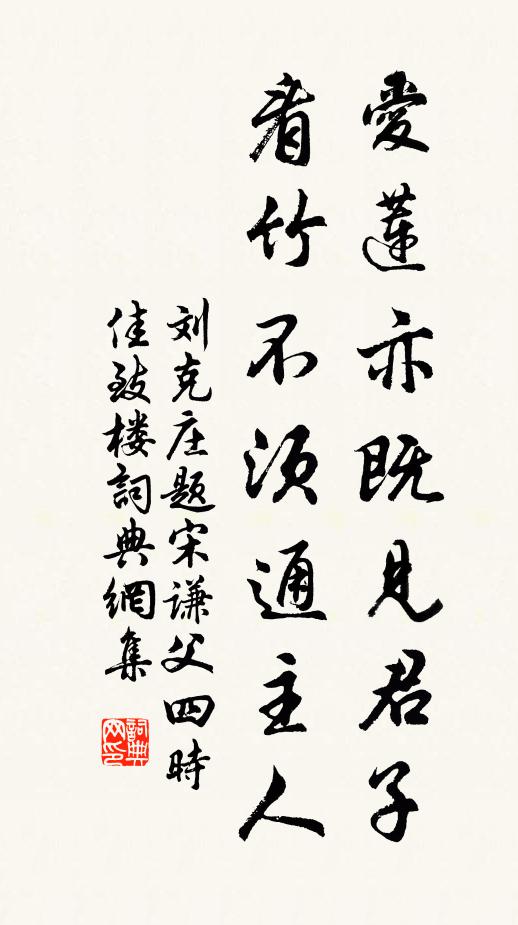 愛蓮亦既見君子
看竹不須通主人
刘克庄题宋谦父四時
佳致楼詞典網集
詞典网印